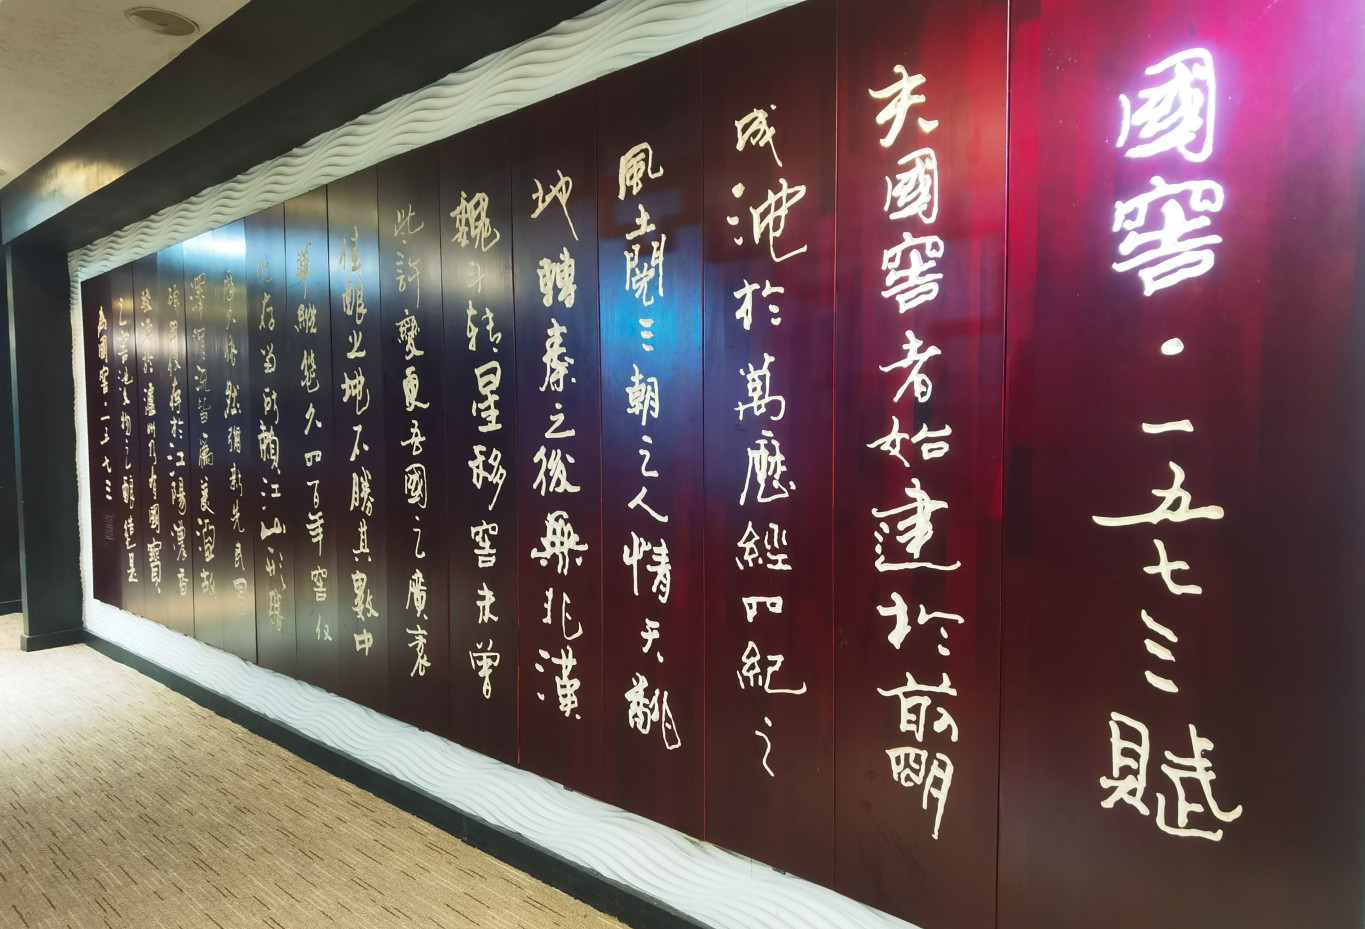 國窖·一五七三賦
夫國窖者始建於前明
成池於萬歷經四紀之
風土閱三朝之人情天翻
地轉秦之後無非漢
魏斗转星移窖未曾
此許變更吾國之廣袤
佳釀之地不勝其數中
華繼絕久四百年窖仅
此存焉所賴江山形勝
然彌新先民
澤潤流芳
存於江陽濃香
發源於瀘州乃有國寶
之窖池生物之釀造是
為國窖·一五七三